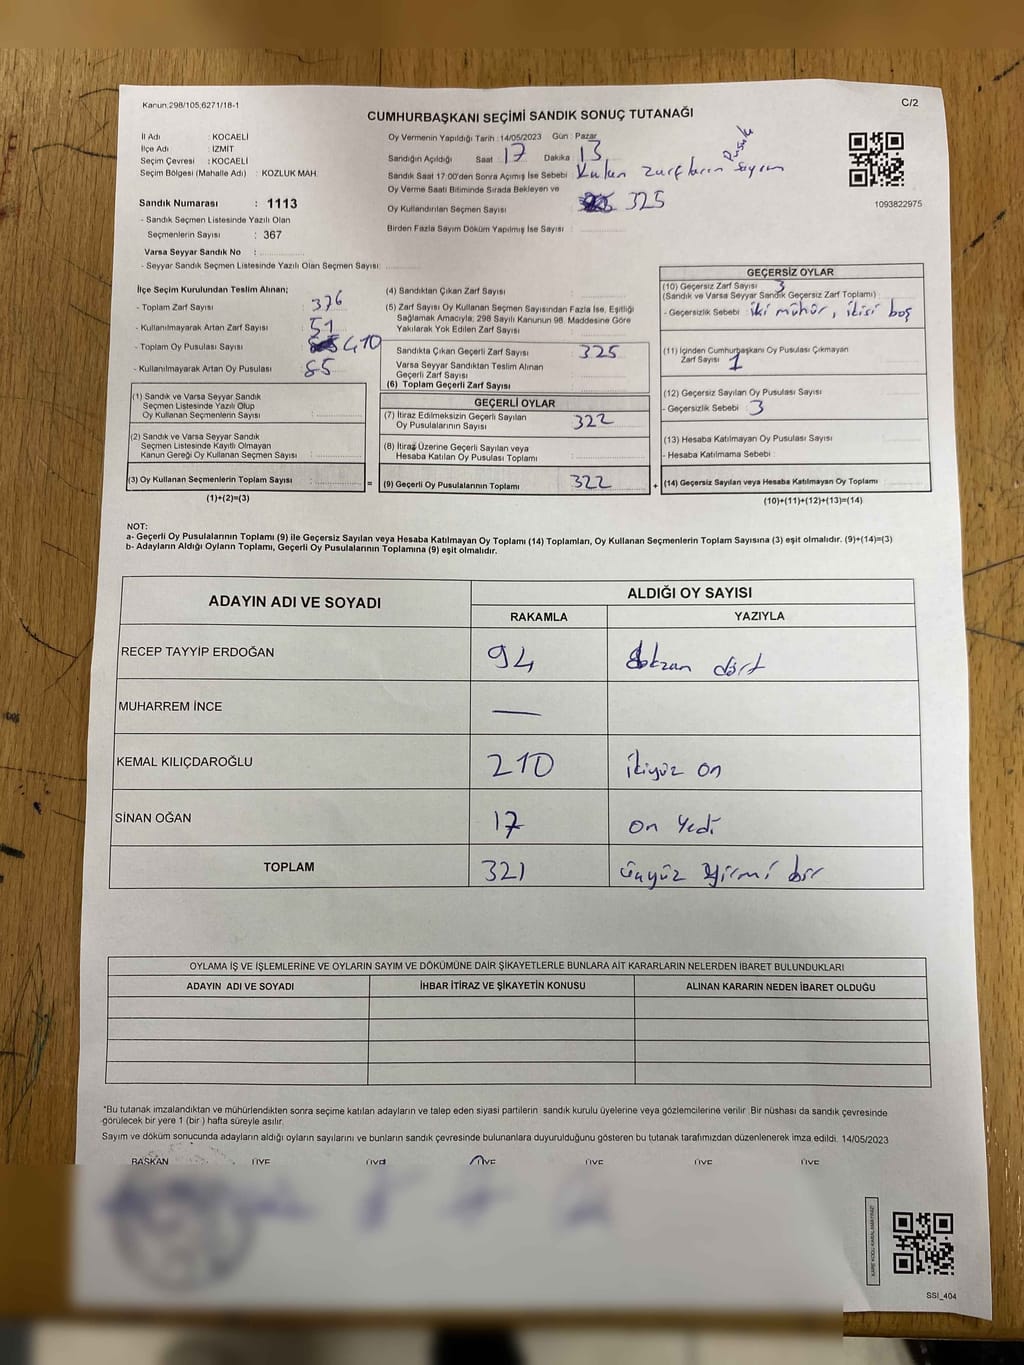 Kanun:298/105,6271/18-1
C/2
CUMHURBAŞKANI SEÇİMİ SANDIK SONUÇ TUTANAĞI
İl Adı : KOCAELİ
İlçe Adı : İZMİT
Seçim Çevresi : KOCAELİ
Seçim Bölgesi (Mahalle Adı) : KOZLUK MAH.
Sandık Numarası : 1113
- Sandık Seçmen Listesinde Yazılı Olan
Seçmenlerin Sayısı : 367
Varsa Seyyar Sandık No :
- Seyyar Sandık Seçmen Listesinde Yazılı Olan Seçmen Sayısı:
Oy Vermenin Yapıldığı Tarih : 14/05/2023 Gün : Pazar
Sandığın Açıldığı Saat 17 Dakika 13
Sandık Saat 17:00'den Sonra Açımış İse Sebebi : Kalan zarfların sayımı
Oy Verme Saati Bitiminde Sırada Bekleyen ve
Oy Kullandırılan Seçmen Sayısı : 325
Birden Fazla Sayım Döküm Yapılmış İse Sayısı :
1093822975
İlçe Seçim Kurulundan Teslim Alınan;
- Toplam Zarf Sayısı : 376
- Kullanılmayarak Artan Zarf Sayısı : 51
- Toplam Oy Pusulası Sayısı : 410
- Kullanılmayarak Artan Oy Pusulası : 85
(1) Sandık ve Varsa Seyyar Sandık
Seçmen Listesinde Yazılı Olup
Oy Kullanan Seçmenlerin Sayısı :
(2) Sandık ve Varsa Seyyar Sandık
Seçmen Listesinde Kayıtlı Olmayan
Kanun Gereği Oy Kullanan Seçmen Sayısı :
(3) Oy Kullanan Seçmenlerin Toplam Sayısı :
(1)+(2)=(3)
=
(4) Sandıktan Çıkan Zarf Sayısı :
(5) Zarf Sayısı Oy Kullanan Seçmen Sayısından Fazla İse, Eşitliği
Sağlamak Amacıyla; 298 Sayılı Kanunun 98. Maddesine Göre
Yakılarak Yok Edilen Zarf Sayısı :
Sandıkta Çıkan Geçerli Zarf Sayısı : 325
Varsa Seyyar Sandıktan Teslim Alınan
Geçerli Zarf Sayısı :
(6) Toplam Geçerli Zarf Sayısı
GEÇERLİ OYLAR
(7) İtiraz Edilmeksizin Geçerli Sayılan
Oy Pusulalarının Sayısı : 322
(8) İtiraz Üzerine Geçerli Sayılan veya
Hesaba Katılan Oy Pusulası Toplamı :
(9) Geçerli Oy Pusulalarının Toplamı : 322
+
GEÇERSİZ OYLAR
(10) Geçersiz Zarf Sayısı 3
(Sandık ve Varsa Seyyar Sandık Geçersiz Zarf Toplamı) :
- Geçersizlik Sebebi : iki mühür, ikisi boş
(11) İçinden Cumhurbaşkanı Oy Pusulası Çıkmayan
Zarf Sayısı 1
(12) Geçersiz Sayılan Oy Pusulası Sayısı :
- Geçersizlik Sebebi : 3
(13) Hesaba Katılmayan Oy Pusulası Sayısı :
- Hesaba Katılmama Sebebi :
(14) Geçersiz Sayılan veya Hesaba Katılmayan Oy Toplamı :
(10)+(11)+(12)+(13)=(14)
NOT:
a- Geçerli Oy Pusulalarının Toplamı (9) ile Geçersiz Sayılan veya Hesaba Katılmayan Oy Toplamı (14) Toplamları, Oy Kullanan Seçmenlerin Toplam Sayısına (3) eşit olmalıdır. (9)+(14)=(3)
b- Adayların Aldığı Oyların Toplamı, Geçerli Oy Pusulalarının Toplamına (9) eşit olmalıdır.
ADAYIN ADI VE SOYADI
ALDIĞI OY SAYISI
RAKAMLA YAZIYLA
RECEP TAYYİP ERDOĞAN 94 doksan dört
MUHARREM İNCE —
KEMAL KILIÇDAROĞLU 210 ikiyüz on
SİNAN OĞAN 17 on yedi
TOPLAM 321 üçyüz yirmi bir
OYLAMA İŞ VE İŞLEMLERİNE VE OYLARIN SAYIM VE DÖKÜMÜNE DAİR ŞİKAYETLERLE BUNLARA AİT KARARLARIN NELERDEN İBARET BULUNDUKLARI
ADAYIN ADI VE SOYADI İHBAR İTİRAZ VE ŞİKAYETİN KONUSU ALINAN KARARIN NEDEN İBARET OLDUĞU
*Bu tutanak imzalandıktan ve mühürlendikten sonra seçime katılan adayların ve talep eden siyasi partilerin sandık kurulu üyelerine veya gözlemcilerine verilir. Bir nüshası da sandık çevresinde
görülecek bir yere 1 (bir) hafta süreyle asılır.
Sayım ve döküm sonucunda adayların aldığı oyların sayılarını ve bunların sandık çevresinde bulunanlara duyurulduğunu gösteren bu tutanak tarafımızdan düzenlenerek imza edildi. 14/05/2023
BAŞKAN ÜYE ÜYE ÜYE ÜYE ÜYE ÜYE
SSI_404